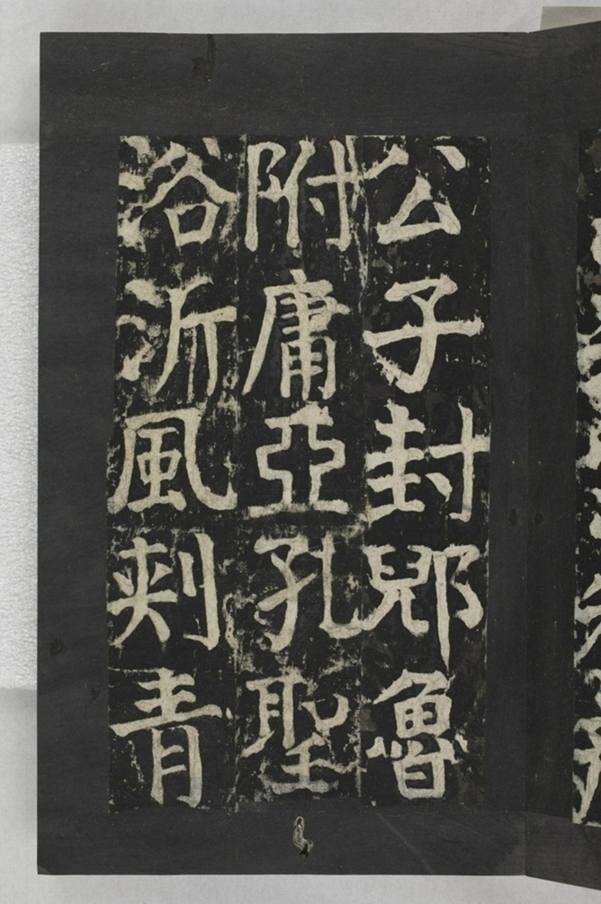 公子封郳魯
附庸亞孔聖
浴沂風刾青